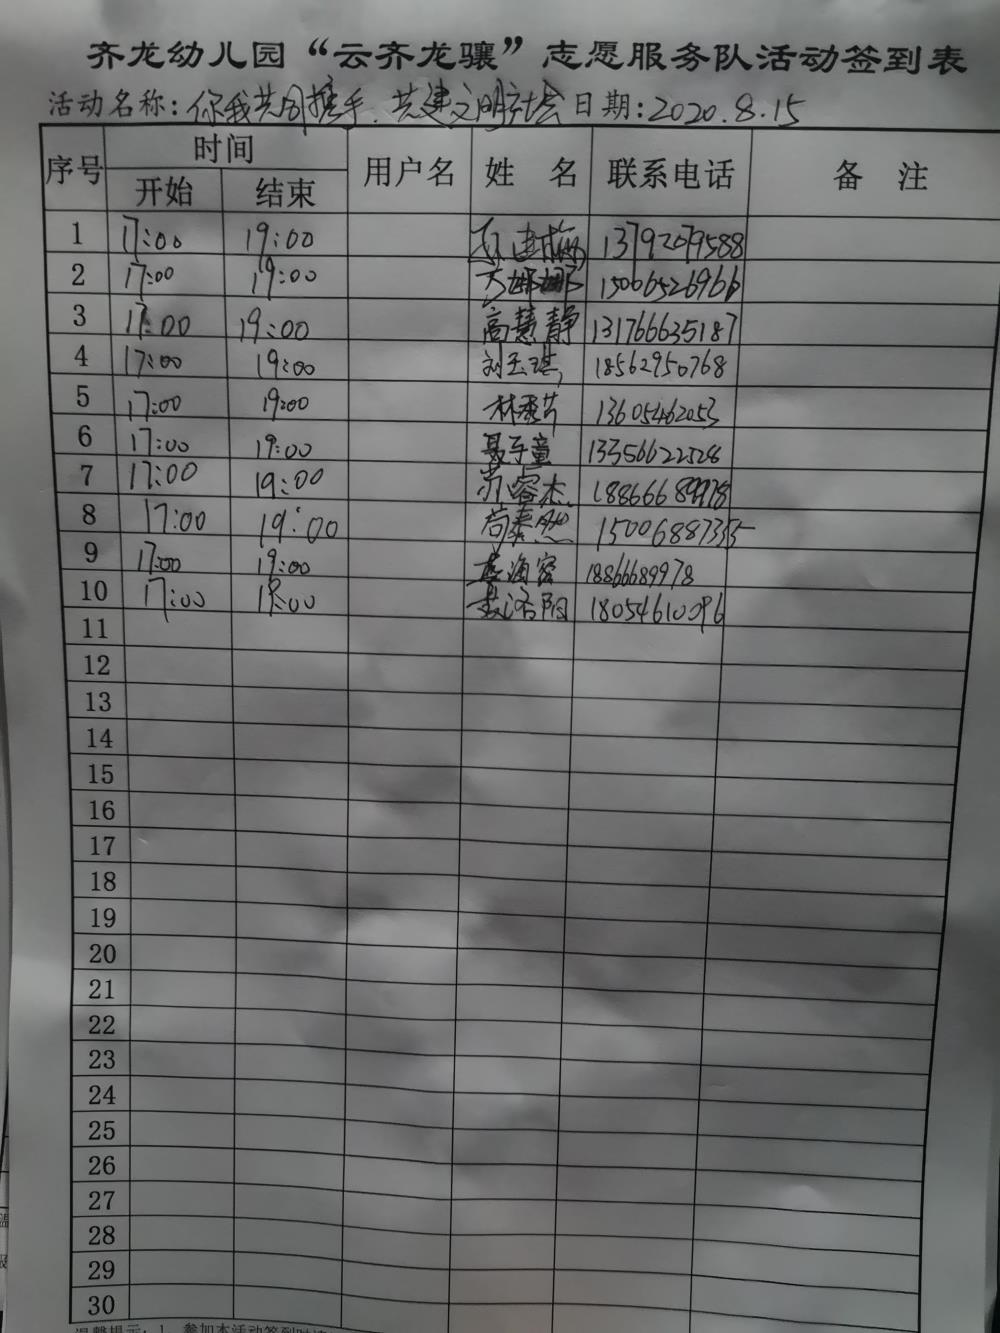 齐龙幼儿园“云齐龙骧”志愿服务队活动签到表
活动名称：你我共同携手、共建文明社会 日期：2020.8.15
序号 时间 用户名 姓 名 联系电话 备 注
开始 结束
1 17:00 19:00 13792079588
2 17:00 19:00 娜娜 15006526966
3 17:00 19:00 高慧静 131766635187
4 17:00 19:00 刘玉琪 18562950768
5 17:00 19:00 林秀芹 13605462053
6 17:00 19:00 聂子童 13356622528
7 17:00 19:00 容杰 18866689978
8 17:00 19:00 苟泰然 15006887355
9 17:00 19:00 18866689978
10 17:00 19:00 洛阳 18054610096
11
12
13
14
15
16
17
18
19
20
21
22
23
24
25
26
27
28
29
30
温馨提示：1、参加本活动签到时请